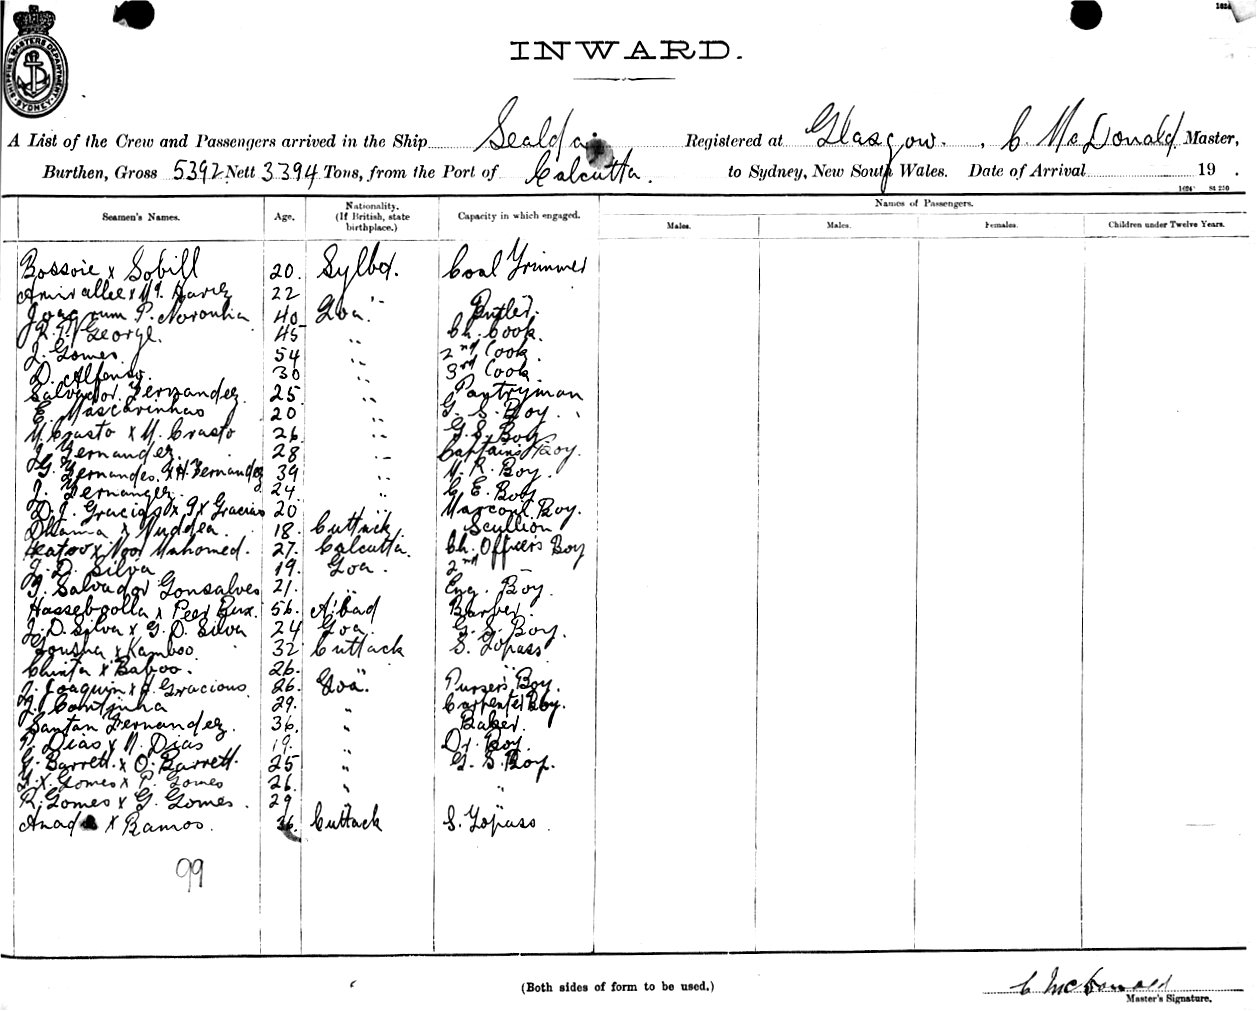 1624
SHIPPING MASTERS DEPARTMENT SYDNEY
INWARD.
A List of the Crew and Passengers arrived in the Ship Sealda Registered at Glasgow. C McDonald Master,
Burthen, Gross 5392 Nett 3394 Tons, from the Port of Calcutta. to Sydney, New South Wales. Date of Arrival 19 .
1624' St 230
Seamen's Names. Age. Nationality. (If British, state birthplace.) Capacity in which engaged. Names of Passengers.
Males. Males. Females. Children under Twelve Years.
Bossoie x Sobill 20. Sylhet. Coal Trimmer
Amirallee x 22 "
Joaquum P. Noronha 40 Goa. Butler.
George. 45 " Ch. Cook.
J. Gomes. 54 " 2nd Cook
D. Alfonso. 30 " 3rd Cook
Salvador Fernandez 25 " Pantryman
E. Mascarinhas 20 " G. S. Boy.
M. Crasto x M. Crasto 26 " G. S. Boy
J. Fernandez. 28 " Captains Boy.
G. Fernandes. x H. Fernandez 39 " M. R. Boy.
J. Fernandez. 24 " C. E. Boy
D. J. Gracias x Gracias 20 " Marconi Boy.
Dhama x Nuddea. 18. Cuttack. Scullion
x Noor Mahomed. 27. Calcutta. Ch. Officers Boy
J. D. Silva 19. Goa. 2nd "
J. Salvador Gonsalves 21. " Eng. Boy.
Hasseboolla x Peer Bux. 56. A'bad Barber.
J. D. Silva x G. D. Silva 24 Goa G. S. Boy.
x Kamboo 32 Cuttack S. Topass
Chinta x Baboo. 26. " "
J. Joaquin x J. Gracious. 26. Goa. Pursers Boy.
J. Contjnha 29. " Carpenter Boy.
Santan Fernandez. 36. " Baker.
P. Dias x N. Dias 19. " Dr. Boy.
G. Barrett. x O. Barrett. 25 " G. S. Boy.
G. x Gomes x P. Gomes 26. " "
R. Gomes x G. Gomes. 29 " "
Anad x Ramos. 36. Cuttack S. Topass.
99
(Both sides of form to be used.)
C McDonald
Master's Signature.